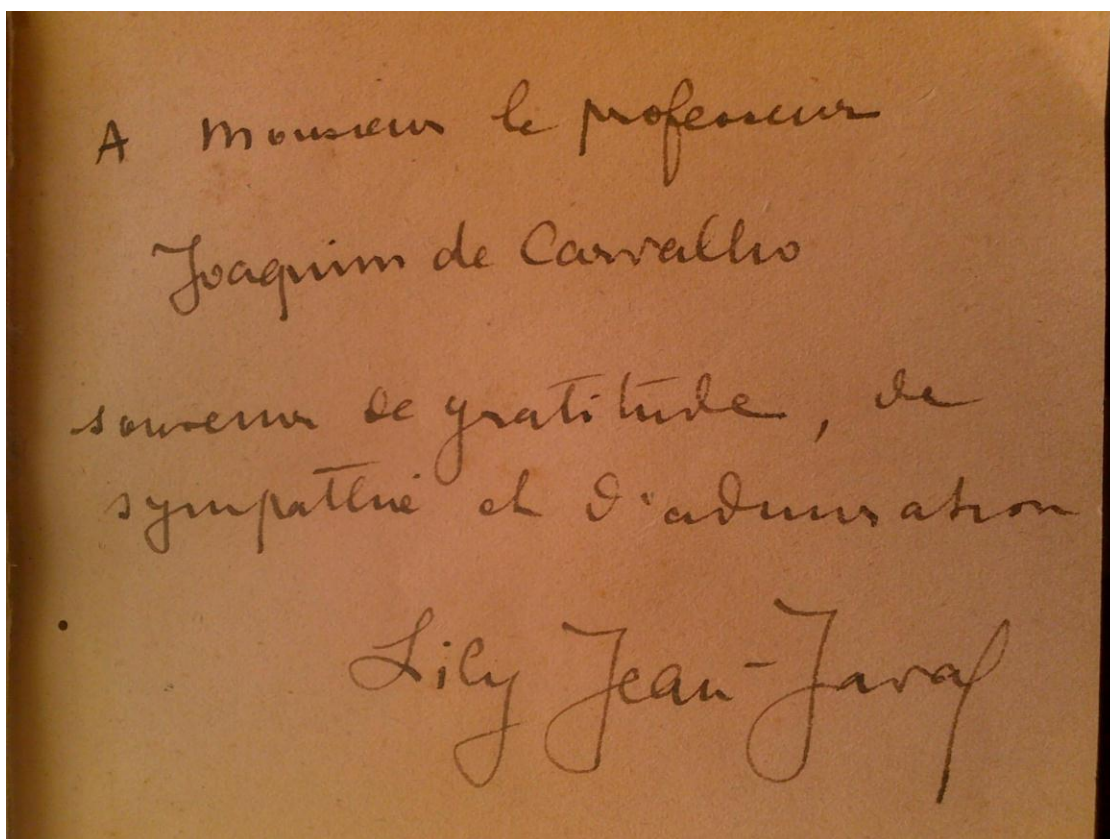 A Monsieur le professeur
Joaquim de Carvalho
souvenir de gratitude, de
sympathie et d'admiration
Lily Jean-Javal